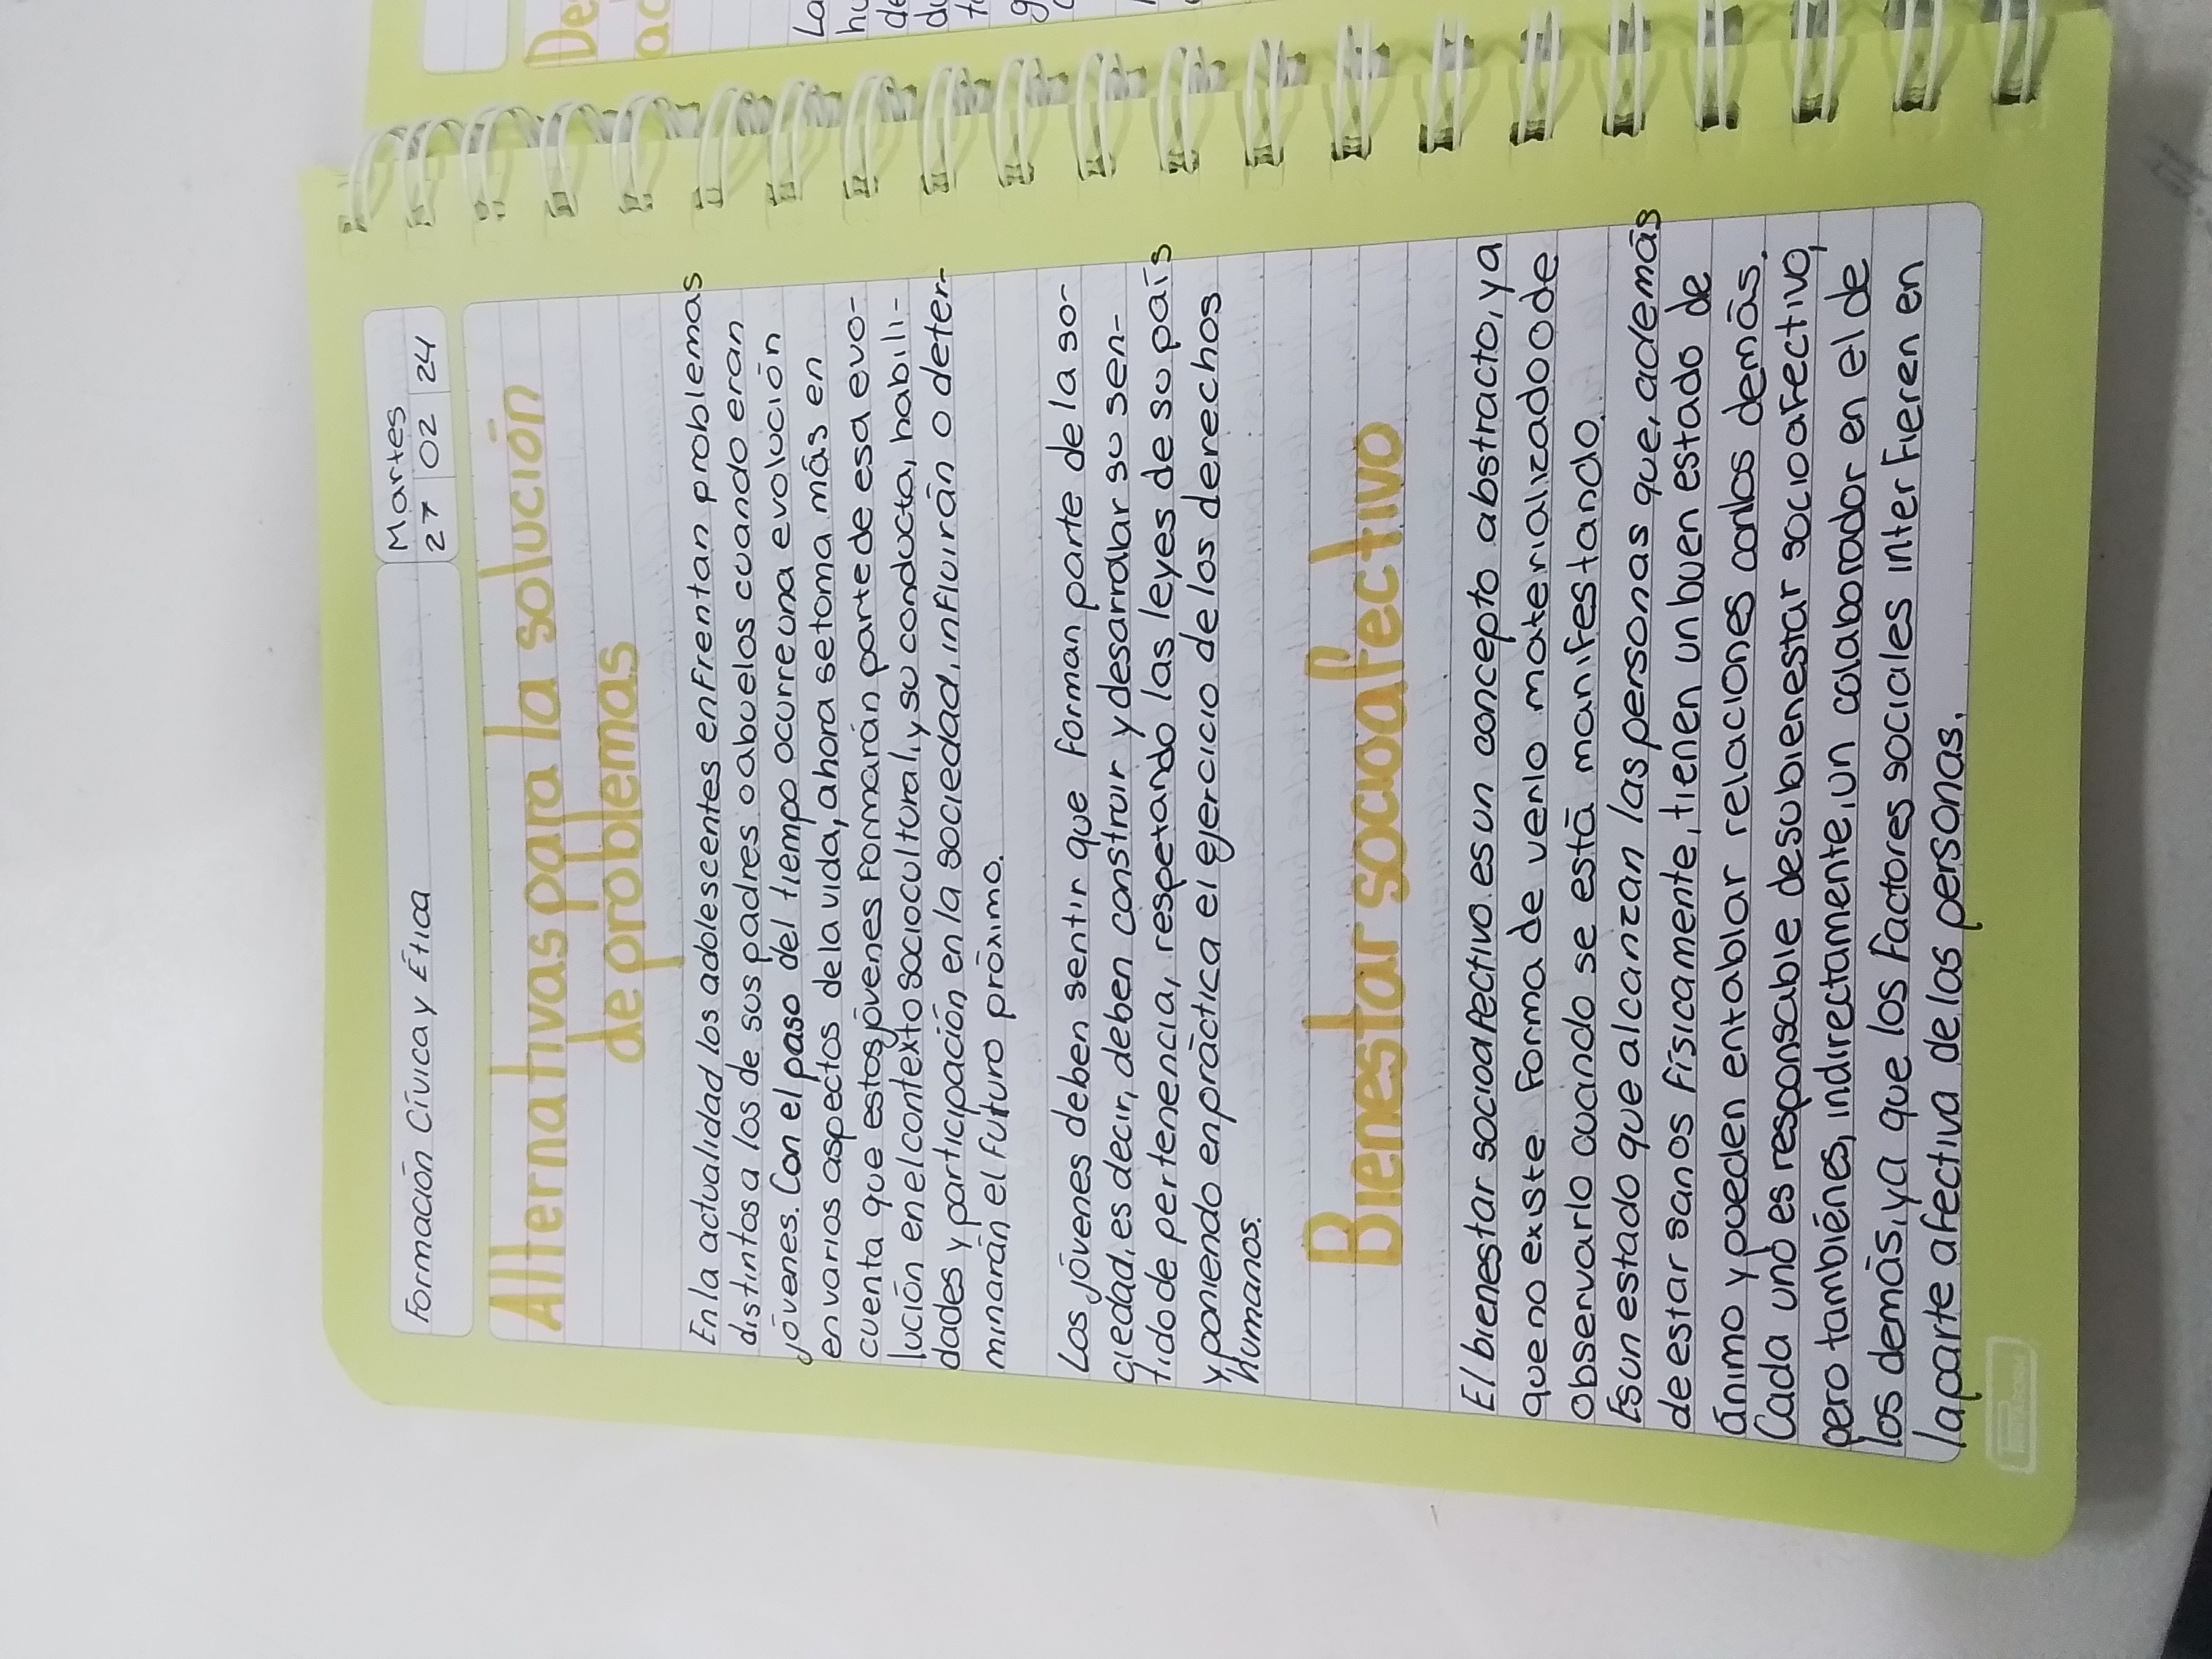 Formación Cívica y Ética
Martes
27 02 24
Alternativas para la solución
de problemas
En la actualidad los adolescentes enfrentan problemas
distintos a los de sus padres o abuelos cuando eran
jóvenes. Con el paso del tiempo ocurre una evolución
en varios aspectos de la vida, ahora se toma más en
cuenta que estos jóvenes formarán parte de esa evo-
lución en el contexto sociocultural, y su conducta, habili-
dades y participación en la sociedad, influirán o deter-
minarán el futuro próximo.
Los jóvenes deben sentir que forman parte de la so-
ciedad, es decir, deben construir y desarrollar su sen-
tido de pertenencia, respetando las leyes de su país
y poniendo en práctica el ejercicio de los derechos
humanos.
Bienestar socioafectivo
El bienestar socioafectivo es un concepto abstracto, ya
que no existe forma de verlo materializado o de
observarlo cuando se está manifestando.
Es un estado que alcanzan las personas que, además
de estar sanos físicamente, tienen un buen estado de
ánimo y pueden entablar relaciones con los demás.
Cada uno es responsable de su bienestar socioafectivo,
pero también es, indirectamente, un colaborador en el de
los demás, ya que los factores sociales interfieren en
la parte afectiva de las personas.
De
ac
La
hu
de